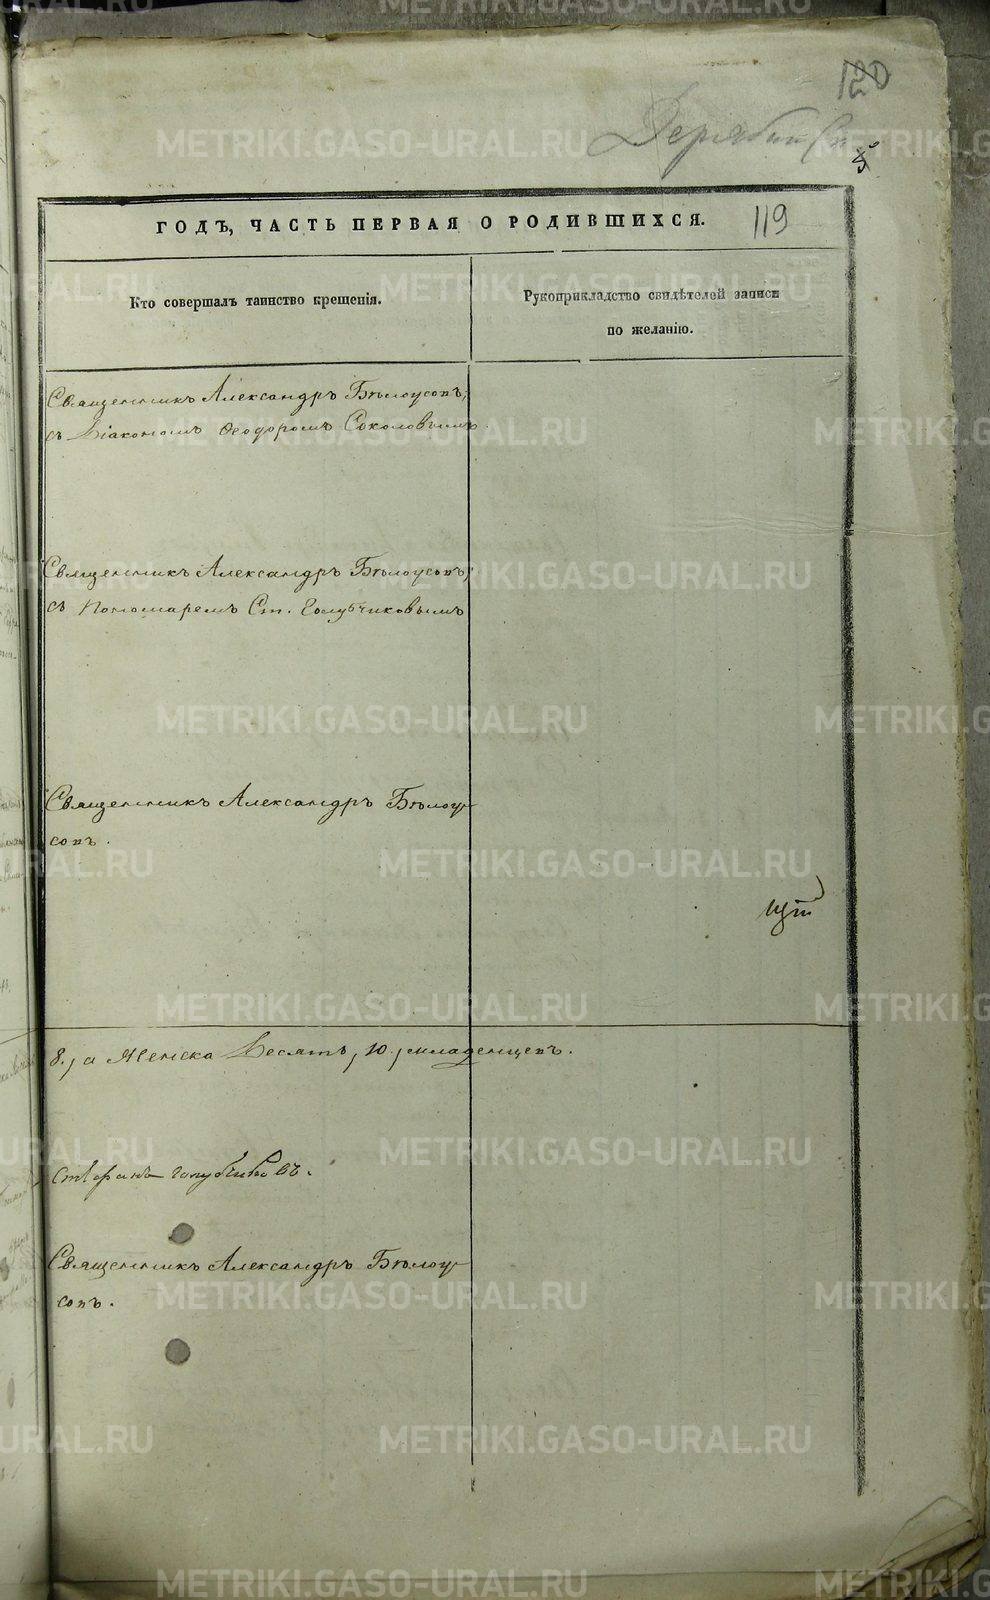 120
Дерябин
5
ГОДЪ, ЧАСТЬ ПЕРВАЯ О РОДИВШИХСЯ.
119
Кто совершалъ таинство крещенія.
Рукоприкладство свидѣтелей записи
по желанію.
Священникъ Александръ Бѣлоусовъ,
съ Діакономъ Ѳеодоромъ Соколовымъ.
Священникъ Александръ Бѣлоусовъ,
съ Пономаремъ Ст. Голубчиковымъ
Священникъ Александръ Бѣлоу-
совъ.
8., а Женска Десять, 10., младенцевъ.
Стефанъ Голубчиковъ.
Священникъ Александръ Бѣлоу-
совъ.
METRIKI.GASO-URAL.RU